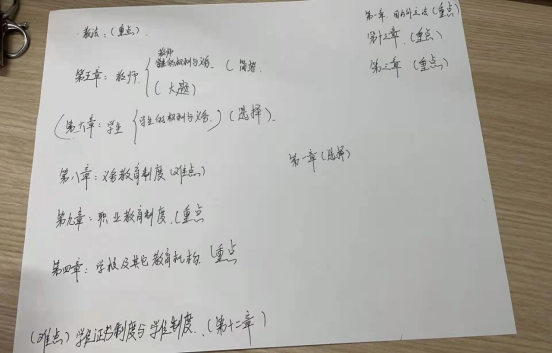 教法：(重点).
第五章：教师 { 教师的权利与义务. (简答
(大题)
(第六章：学生 {学生的权利与义务.) (选择).
第八章：义务教育制度 (难点)
第九章：职业教育制度. (重点
第四章：学校及其它教育机构. (重点
(难点) 学业证书制度与学位制度. (第十二章)
第一章. (重点)
第十三章. (重点)
第二章 (重点)
第一章 (选择)